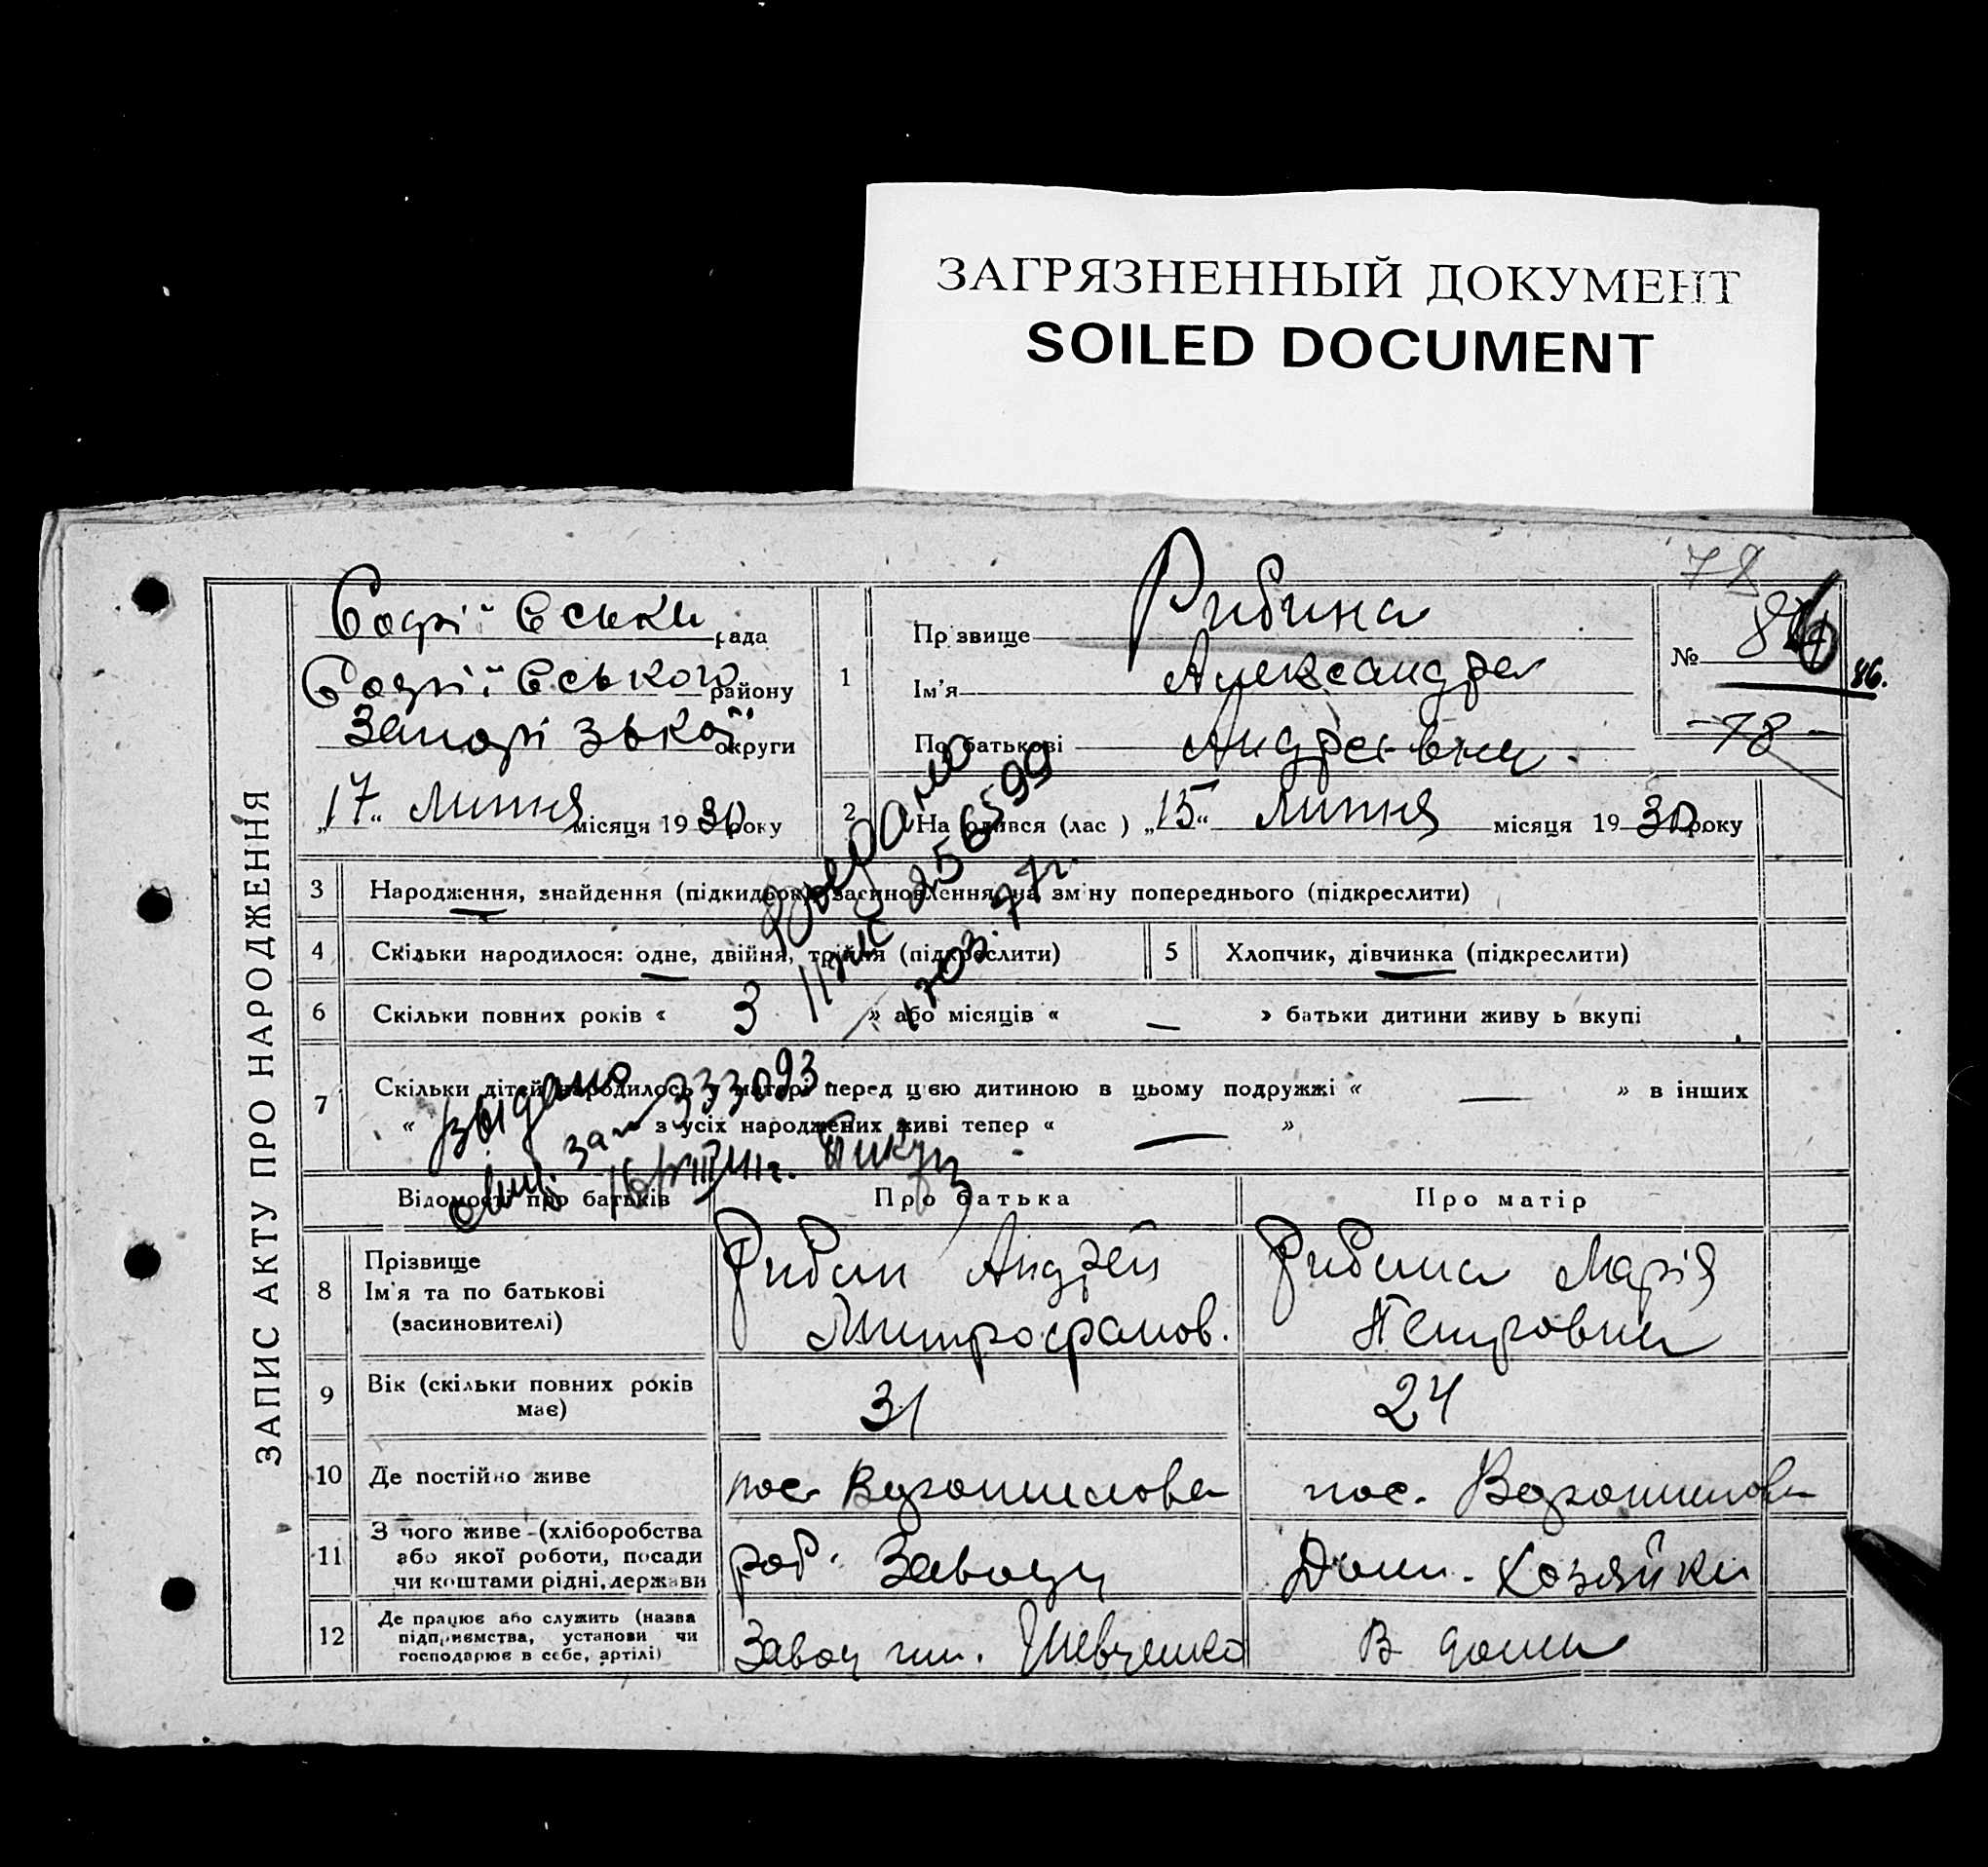 ЗАГРЯЗНЕННЫЙ ДОКУМЕНТ
SOILED DOCUMENT
78
ЗАПИС АКТУ ПРО НАРОДЖЕННЯ
Софіївськ рада
Софіївського району
Запорізької округи
„17“ липня місяця 1930 року
1
Прізвище Рибина
Ім'я Александра
По батькові Андреевна.
№ 86
86.
-78-
2 Народився (лас) „15“ липня місяця 1930 року
3 Народження, знайдення (підкидьок) засиновлення, на зміну попереднього (підкреслити)
4 Скільки народилося: одне, двійня, трійня (підкреслити)
5 Хлопчик, дівчинка (підкреслити)
6 Скільки повних років « 3 » або місяців « — » батьки дитини живуть вкупі
7 Скільки дітей народилось у матері перед цією дитиною в цьому подружжі « — » в інших
« з усіх народжених живі тепер « — »
256599
Выдано
за № 333093
Відомості про батьків
Про батька
Про матір
8 Прізвище
Ім'я та по батькові
(засиновителі)
Рибин Андрей
Митрофанов.
Рибина Марія
Петровна
9 Вік (скільки повних років
має)
31
24
10 Де постійно живе
пос. Ворошилова
пос. Ворошилова
11 З чого живе (хліборобства
або якої роботи, посади
чи коштами рідні, держави
роб. Заводу
Дом. Хозяйка
12 Де працює або служить (назва
підприємства, установи чи
господарює в себе, артілі)
Завод им. Шевченко
В доми